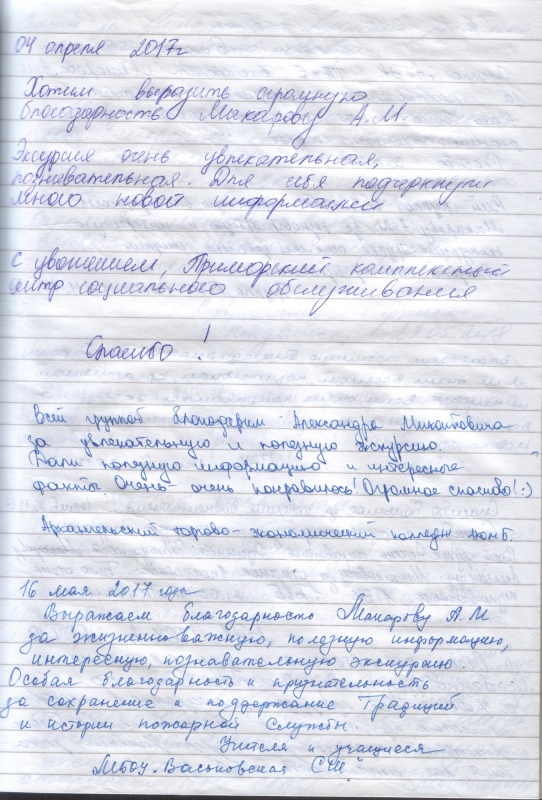 04 апреля 2017г
Хотим выразить огромную
благодарность Макарову А.М.
Экскурсия очень увлекательная,
познавательная. Для себя подчеркнули
много новой информации
С уважением, Приморский комплексный
центр социального обслуживания
Спасибо!
Всей группой благодарим Александра Михайловича
за увлекательную и полезную экскурсию.
Дали полезную информацию и интересные
факты. Очень-очень понравилось! Огромное спасибо! :)
Архангельский торгово-экономический колледж
16 мая 2017 года
Выражаем благодарность Макарову А.М
за жизненно важную, полезную информацию,
интересную, познавательную экскурсию.
Особая благодарность и признательность
за сохранение и поддержание Традиций
и истории пожарной Службы.
Учителя и учащиеся
МБОУ "Васьковская СШ"